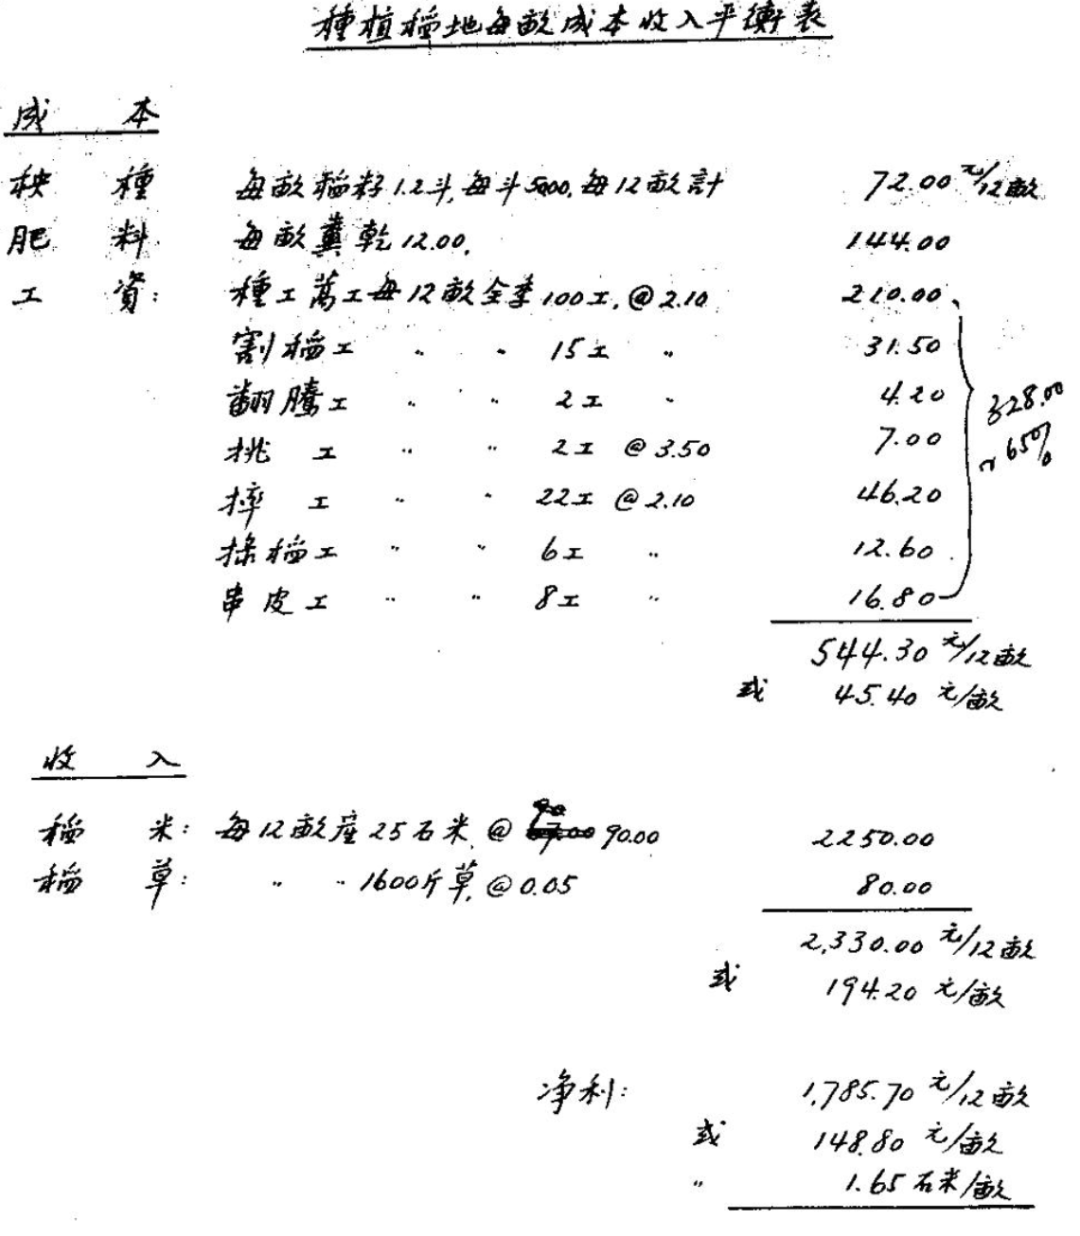 種植稻地每畝成本收入平衡表
成 本
秧 種 每畝稻籽1.2斗,每斗5.00,每12畝計 72.00 元/12畝
肥 料 每畝糞乾12.00, 144.00
工 資: 種工萬工每12畝全季100工,@2.10 210.00
割稻工 〃 〃 15工 〃 31.50
翻騰工 〃 〃 2工 〃 4.20
挑 工 〃 〃 2工 @3.50 7.00
摔 工 〃 〃 22工 @2.10 46.20
搡稻工 〃 〃 6工 〃 12.60
串皮工 〃 〃 8工 〃 16.80
328.00
~65%
544.30 元/12畝
或 45.40 元/畝
收 入
稻 米: 每12畝產25石米,@ 90.00 2250.00
稻 草: 〃 〃 1600斤草,@0.05 80.00
2,330.00 元/12畝
或 194.20 元/畝
净利: 1,785.70 元/12畝
或 148.80 元/畝
〃 1.65 石米/畝